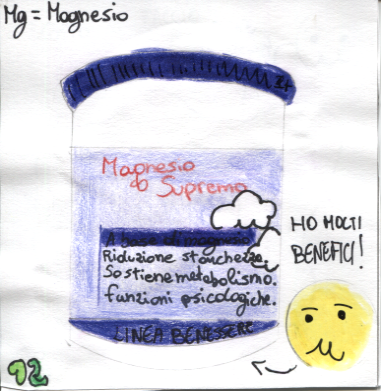 Mg = Magnesio
Magnesio
Supremo
A base di magnesio
Riduzione stanchezza.
Sostiene metabolismo.
funzioni psicologiche.
LINEA BENESSERE
HO MOLTI
BENEFICI!
12